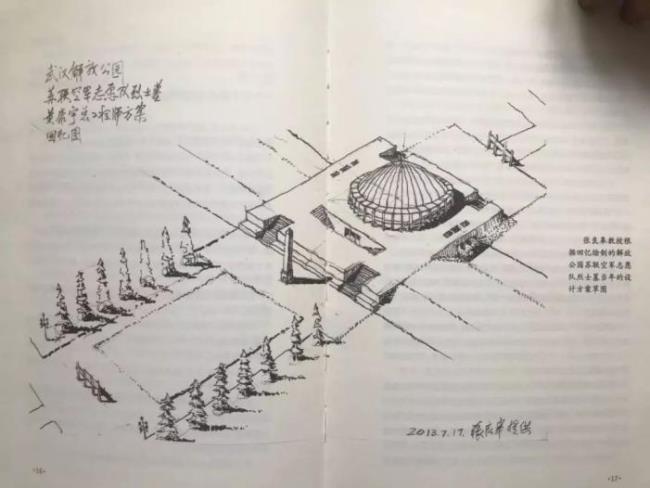 武汉解放公园
苏联空军志愿队烈士墓
黄康宇总工程师方案
回忆图
张良皋教授根
据回忆绘制的解放
公园苏联空军志愿
队烈士墓当年的设
计方案草图
2013.7.17. 張良皋提供
·16·
·17·